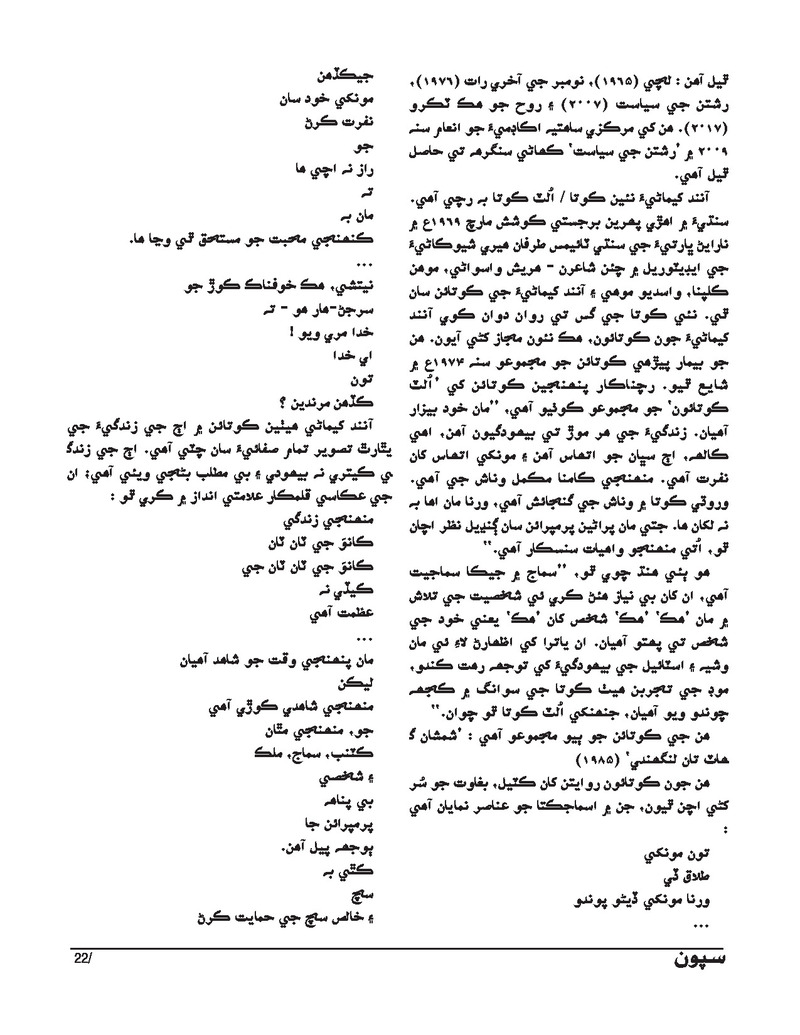 ٿيل آهن : لڇي (۱۹۶۵)، نومبر جي آخري رات (۱۹۷۶)،
رشتن جي سياست (۲۰۰۷) ۽ روح جو هڪ ٽڪرو
(۲۰۱۷). هن کي مرڪزي ساهتيہ اڪاڊميءَ جو انعام سنہ
۲۰۰۹ ۾ ’رشتن جي سياست‘ ڪهاڻي سنگرهہ تي حاصل
ٿيل آهي.
آنند کيماڻيءَ نئين ڪوتا / اُلٽ ڪوتا بہ رچي آهي.
سنڌيءَ ۾ اهڙي پهرين برجستي ڪوشش مارچ ۱۹۶۹ع ۾
نارايڻ ڀارتيءَ جي سنڌي ٽائيمس طرفان هيري شيوڪاڻيءَ
جي ايڊيٽوريل ۾ چئن شاعرن - هريش واسواڻي، موهن
ڪلپنا، واسديو موهي ۽ آنند کيماڻيءَ جي ڪوتائن سان
ٿي. نئي ڪوتا جي گس تي روان دوان ڪوي آنند
کيماڻيءَ جون ڪوتائون، هڪ نئون مڃاز کڻي آيون. هن
جو بيمار پيڙهي ڪوتائن جو مجموعو سنہ ۱۹۷۴ع ۾
شايع ٿيو. رچناڪار پنهنجين ڪوتائن کي ’اُلٽ
ڪوتائون‘ جو مجموعو ڪوٺيو آهي، ”مان خود بيزار
آهيان. زندگيءَ جي هر موڙ تي بيهودگيون آهن، اهي
ڪالهہ، اڄ سڀان جو اتهاس آهن ۽ مونکي اتهاس کان
نفرت آهي. منهنجي ڪامنا مڪمل وناش جي آهي.
وروڌي ڪوتا ۾ وناش جي گنجائش آهي، ورنا مان اها بہ
نہ لکان ها. جتي مان پراڻين پرمپرائن سان ڳنڍيل نظر اچان
ٿو، اُتي منهنجو واهيات سنسڪار آهي.“
هو ٻئي هنڌ چوي ٿو، ”سماج ۾ جيڪا سماجيت
آهي، ان کان بي نياز هئڻ ڪري ئي شخصيت جي تلاش
۾ مان ’هڪ‘ ’هڪ‘ شخص کان ’هڪ‘ يعني خود جي
شخص تي پهتو آهيان. ان ياترا کي اظهارڻ لاءِ ئي مان
وشيہ ۽ اسٽائيل جي بيهودگيءَ کي توجهہ رهت ڪندو،
موڊ جي تجربن هيٺ ڪوتا جي سوانگ ۾ ڪجهہ
چوندو ويو آهيان، جنهنکي اُلٽ ڪوتا ٿو چوان.“
هن جي ڪوتائن جو ٻيو مجموعو آهي : ’شمشان گ
هاٽ تان لنگهندي‘ (۱۹۸۵)
هن جون ڪوتائون روايتن کان ڪٽيل، بغاوت جو سُر
کڻي اچن ٿيون، جن ۾ اسماجڪتا جو عناصر نمايان آهي
:
تون مونکي
طلاق ڏي
ورنا مونکي ڏيڻو پوندو
...
جيڪڏهن
مونکي خود سان
نفرت ڪرڻ
جو
راز نہ اچي ها
تہ
مان بہ
ڪنهنجي محبت جو مستحق ٿي وڃا ها.
...
نيتشي، هڪ خوفناڪ ڪوڙ جو
سرجڻ-هار هو - تہ
خدا مري ويو !
اي خدا
تون
ڪڏهن مرندين ؟
آنند کيماڻي هيٺين ڪوتائن ۾ اڄ جي زندگيءَ جي
يٿارٿ تصوير تمام صفائيءَ سان چٽي آهي. اڄ جي زندگ
ي ڪيتري نہ بيهودي ۽ بي مطلب بڻجي ويئي آهي؛ ان
جي عڪاسي قلمڪار علامتي انداز ۾ ڪري ٿو :
منهنجي زندگي
ڪانوَ جي ٽان ٽان
ڪانوَ جي ٽان ٽان جي
ڪيڏي نہ
عظمت آهي
...
مان پنهنجي وقت جو شاهد آهيان
ليڪن
منهنجي شاهدي ڪوڙي آهي
جو، منهنجي مٿان
ڪٽنب، سماج، ملڪ
۽ شخصي
بي پناهہ
پرمپرائن جا
ٻوجهہ پيل آهن.
ڪٿي بہ
سچ
۽ خالص سچ جي حمايت ڪرڻ
سپون
22/